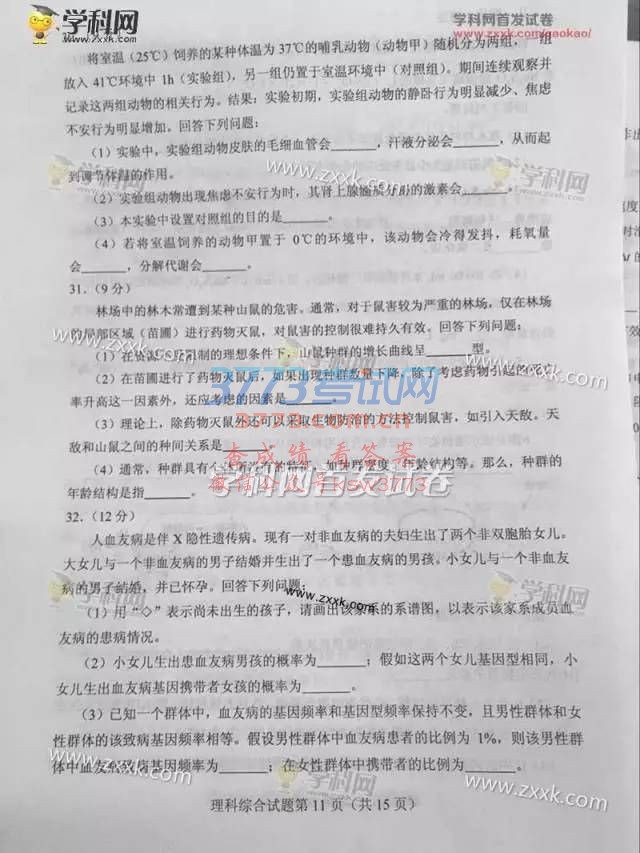 学科网
www.zxxk.com
学科网首发试卷
www.zxxk.com/gaokao/
将室温（25℃）饲养的某种体温为37℃的哺乳动物（动物甲）随机分为两组，一组
放入 41℃环境中 1h（实验组），另一组仍置于室温环境中（对照组）。期间连续观察并
记录这两组动物的相关行为。结果：实验初期，实验组动物的静卧行为明显减少、焦虑
不安行为明显增加。回答下列问题：
（1）实验中，实验组动物皮肤的毛细血管会______，汗液分泌会______，从而起
到调节体温的作用。
学科网
www.zxxk.com
（2）实验组动物出现焦虑不安行为时，其肾上腺髓质分泌的激素会______。
（3）本实验中设置对照组的目的是______。
（4）若将室温饲养的动物甲置于 0℃的环境中，该动物会冷得发抖，耗氧量
会______，分解代谢会______。
31.（9 分）
林场中的林木常遭到某种山鼠的危害。通常，对于鼠害较为严重的林场，仅在林场
的局部区域（苗圃）进行药物灭鼠，对鼠害的控制很难持久有效。回答下列问题：
www.zxxk.com
（1）在资源不受限制的理想条件下，山鼠种群的增长曲线呈______型。
3773考试网
（2）在苗圃进行了药物灭鼠后，如果出现种群数量下降，除了考虑药物引起的死亡
率升高这一因素外，还应考虑的因素是______。
3773.com
（3）理论上，除药物灭鼠外还可以采取生物防治的方法控制鼠害，如引入天敌。天
敌和山鼠之间的种间关系是______。
查成绩 看答案
（4）通常，种群具有个体所没有的特征，如种群密度、年龄结构等。那么，种群的
年龄结构是指______。
学科网首发试卷
32.（12 分）
人血友病是伴 X 隐性遗传病。现有一对非血友病的夫妇生出了两个非双胞胎女儿。
大女儿与一个非血友病的男子结婚并生出了一个患血友病的男孩。小女儿与一个非血友
病的男子结婚，并已怀孕。回答下列问题：
www.zxxk.com
学科网
（1）用“◇”表示尚未出生的孩子，请画出该家系的系谱图，以表示该家系成员血
友病的患病情况。
（2）小女儿生出患血友病男孩的概率为______；假如这两个女儿基因型相同，小
女儿生出血友病基因携带者女孩的概率为______。
（3）已知一个群体中，血友病的基因频率和基因型频率保持不变，且男性群体和女
性群体的该致病基因频率相等。假设男性群体中血友病患者的比例为 1%，则该男性群
体中血友病致病基因频率为______；在女性群体中携带者的比例为______。
www.zxxk.com
www.zxxk.com
理科综合试题第 11 页（共 15 页）